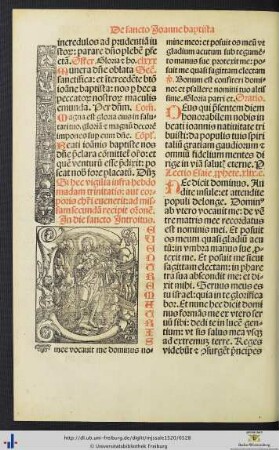 De sancto Joanne baptista
incredulos ad prudentiā iu
storū: parare dn̄o plebē ꝑfe
ctā. Offer. Gloria ⁊ ho.
Munera dn̄e oblata
sanctifica: et intercedēte bt̄o
ioāne baptista: nos ⁊ hec a
peccatorū nostrorū maculis
emunda. Per dn̄m.
Magna est gloria eius in salu
tari tuo: gloriā et magnū decorē
impones sup eum dn̄e.
Beati ioānis baptiste nos
dn̄e p̄clara comitet̄ oro: et
quē venturū esse p̄dixit: po
scat nob̄ fore placatū.
In die sancto Introitus.
DE VENTRE MATRIS
mee vocauit me dominus no
mine meo: et posuit os meū vt
gladium acutum sub tegumēto
manus sue protexit me: posuit
me quasi sagittam electam.
Bonum est confiteri domi
no: et psallere nomini tuo altis
sime. Gloria patri
Deus qui presentem diem
honorabilem nobis in
beati ioannis natiuitate fe
cisti: da populis tuis spiri
tualiū gratiam gaudiorum et
omnium fidelium mentes di
rige in viā salut̄ eterne. P
Lectio Esaie
Hec dicit dominus. Audi
te insule: et attendite
populi delonge. Domin⁹
ab vtero vocauit me: de vē
tre matris mee recordatus
est nominis mei. Et posuit
os meum quasi gladiū acu
tum in vmbra manus sue p̄
texit me. Et posuit me sicut
sagittam electam: in phare
tra sua abscondit me: et di
xit mihi. Seruus meus es
tu israel: quia in te glorifica
bor. Et nunc dicit dominus
formās me ex vtero ser
uū sibi: dedi te in lucē gen
tium: vt sis salus mea vsq̄
ad extremū terre. Reges
videbūt ⁊ ↄsurgēt prīcipes
http://dl.ub.uni-freiburg.de/diglit/missale1520/0328
© Universitätsbibliothek Freiburg